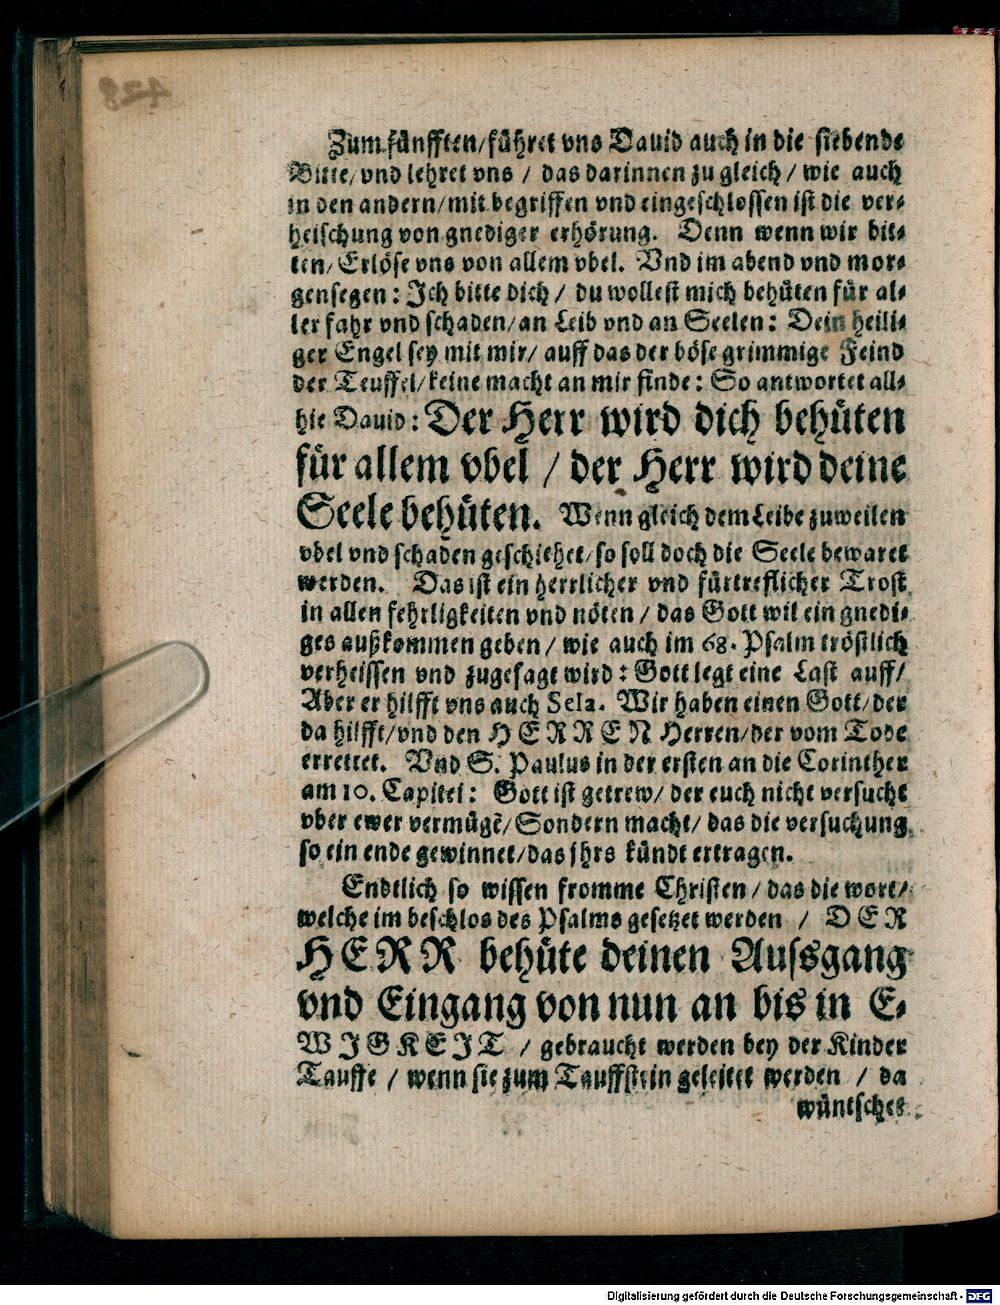 Zum fünfften/führet vns Dauid auch in die siebende
Bitte/vnd lehret vns / das darinnen zu gleich / wie auch
in den andern/mit begriffen vnd eingeschlossen ist die ver⸗
heischung von gnediger erhörung. Denn wenn wir bit⸗
ten/Erlöse vns von allem vbel. Vnd im abend vnd mor⸗
gensegen: Ich bitte dich / du wollest mich behüten für al⸗
ler fahr vnd schaden/an Leib vnd an Seelen: Dein heili⸗
ger Engel sey mit mir/ auff das der böse grimmige Feind
der Teuffel/keine macht an mir finde: So antwortet all⸗
hie Dauid: Der Herr wird dich behüten
für allem vbel / der Herr wird deine
Seele behüten. Wenn gleich dem Leibe zuweilen
vbel vnd schaden geschiehet/so soll doch die Seele bewaret
werden. Das ist ein herrlicher vnd fürtreflicher Trost
in allen fehrligkeiten vnd nöten / das Gott wil ein gnedi⸗
ges außkommen geben / wie auch im 68. Psalm tröstlich
verheissen vnd zugesagt wird: Gott legt eine Last auff/
Aber er hilfft vns auch Sela. Wir haben einen Gott/der
da hilfft/vnd den HERREN Herren/der vom Tode
errettet. Vnd S. Paulus in der ersten an die Corinther
am 10. Capitel: Gott ist getrew/ der euch nicht versucht
vber ewer vermügẽ/Sondern macht/ das die versuchung
so ein ende gewinnet/das jhrs kündt ertragen.
Endtlich so wissen fromme Christen / das die wort/
welche im beschlos des Psalms gesetzet werden / DER
HERR behüte deinen Aussgang
vnd Eingang von nun an bis in E⸗
WIGKEIT / gebraucht werden bey der Kinder
Tauffe / wenn sie zum Tauffstein geleitet werden / da
wüntschet
Digitalisierung gefördert durch die Deutsche Forschungsgemeinschaft - DFG